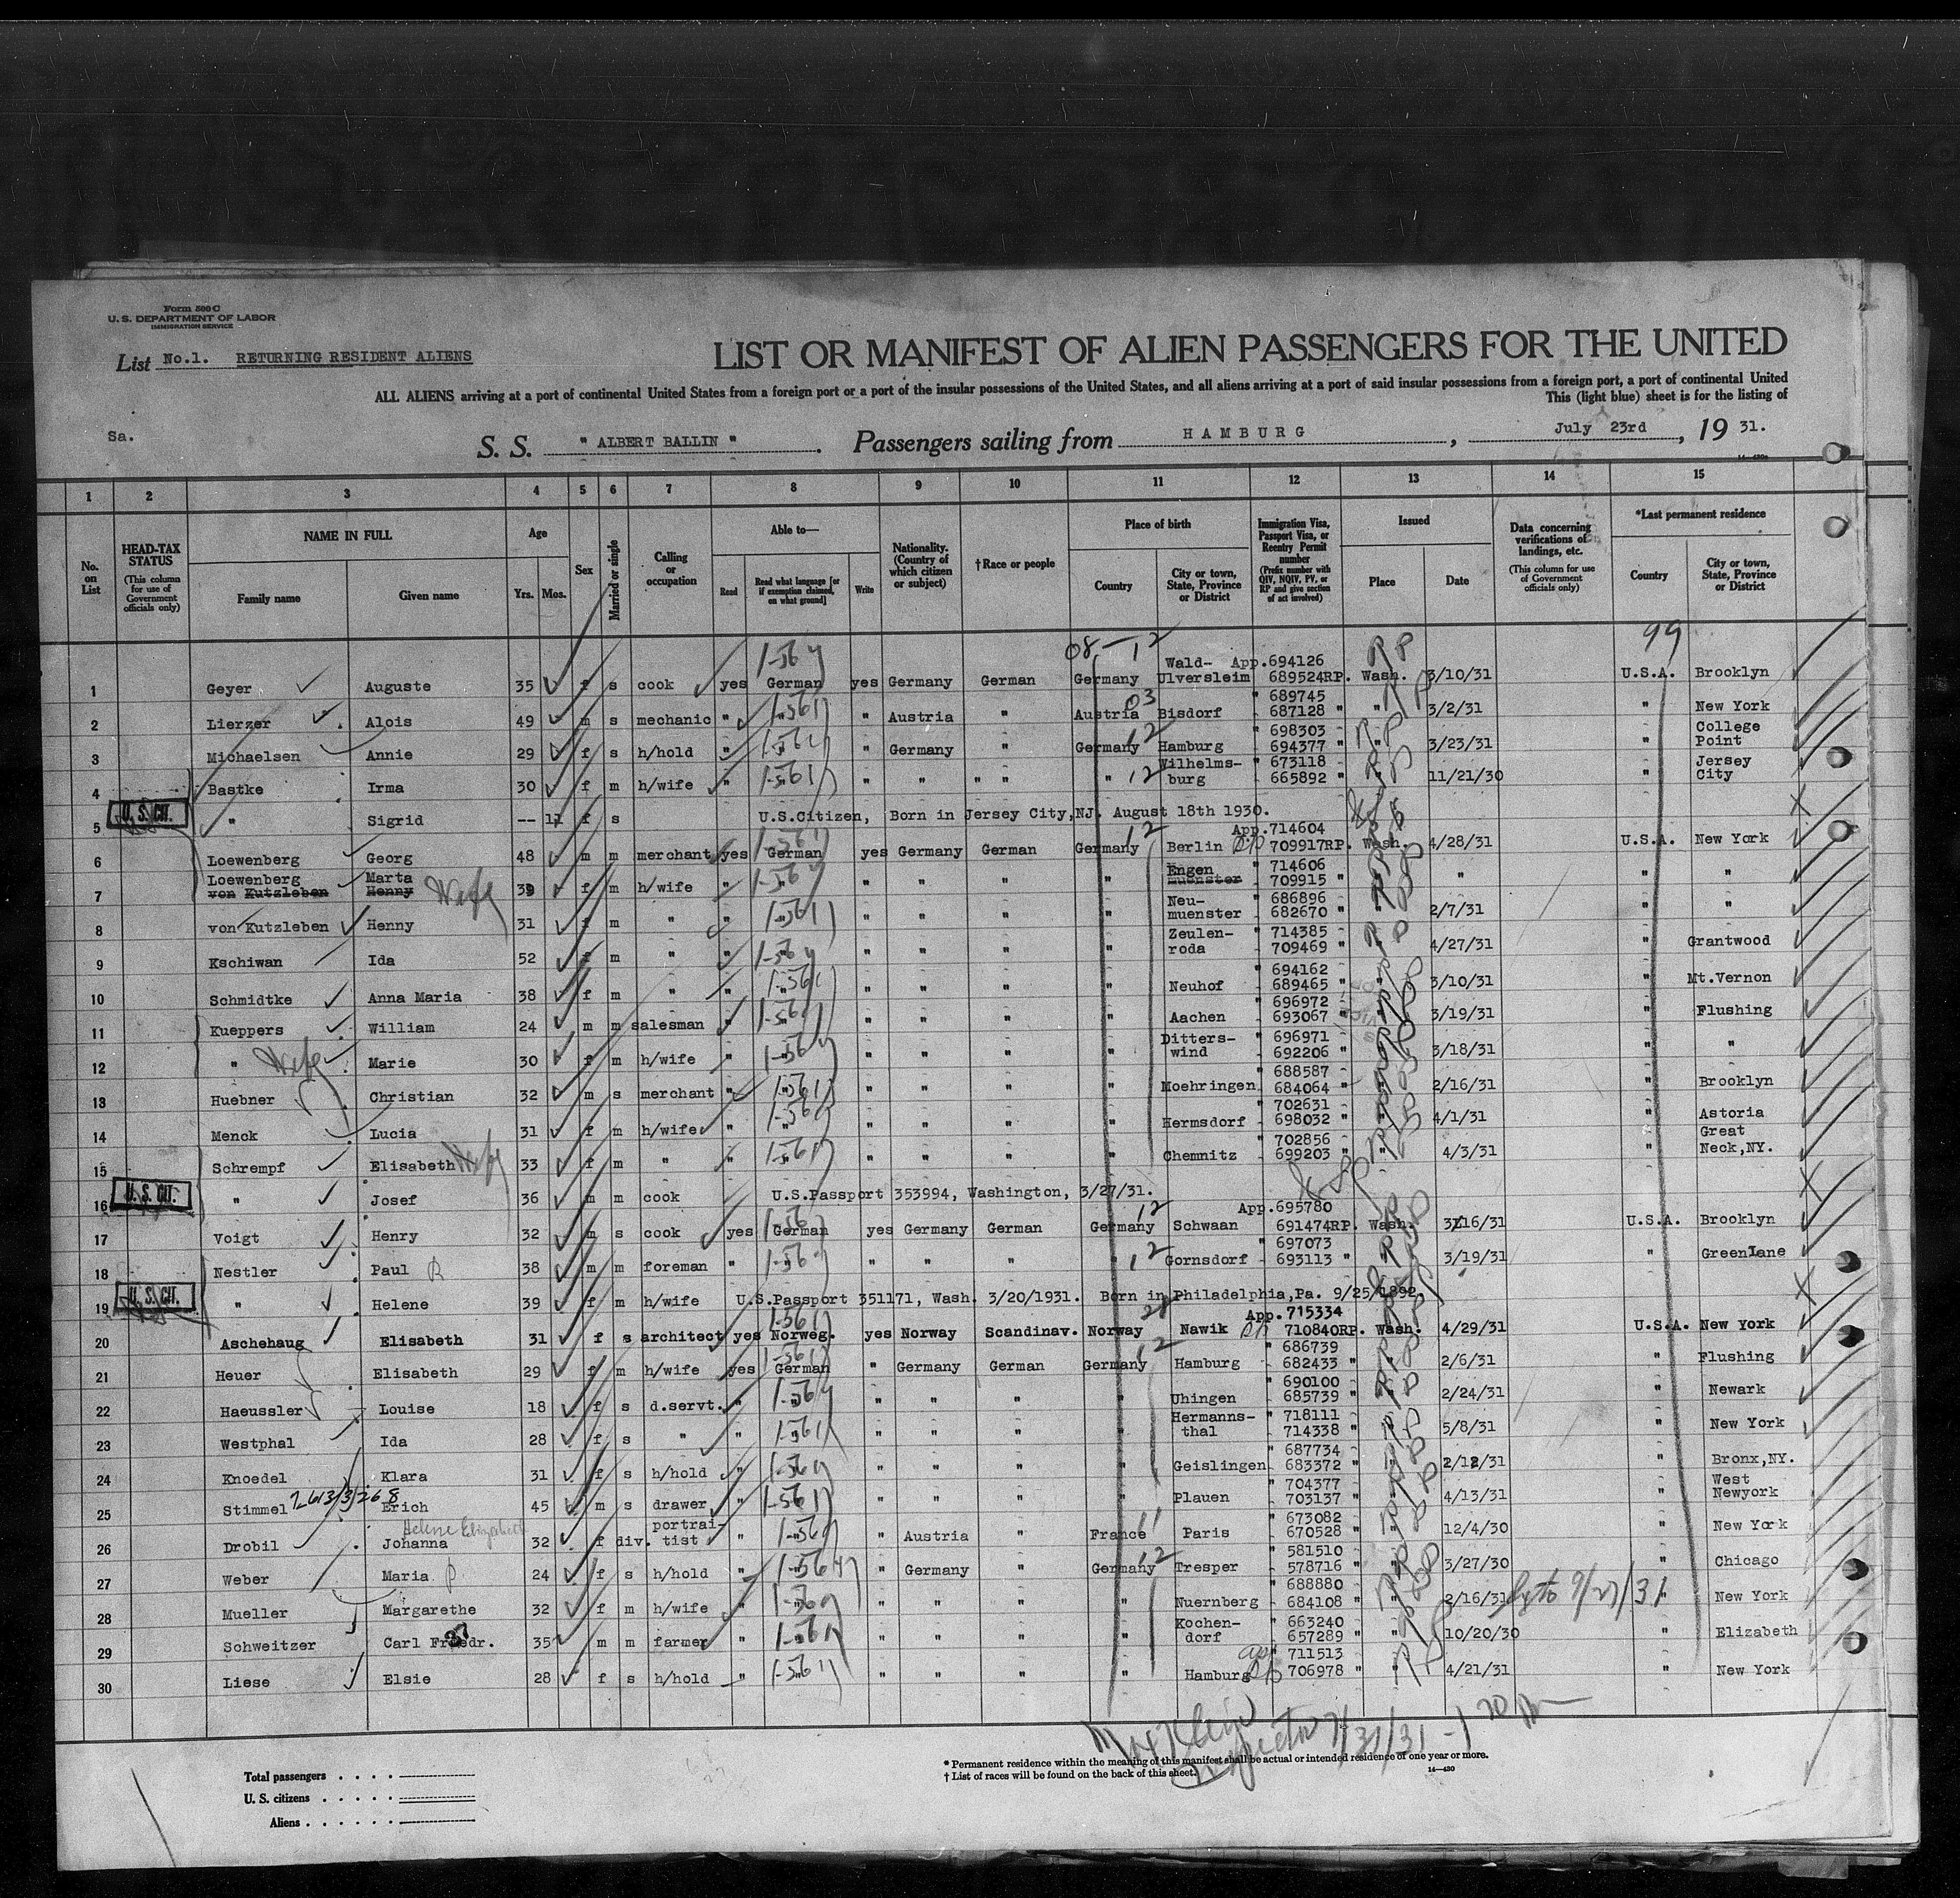 Form 500 C
U. S. DEPARTMENT OF LABOR
IMMIGRATION SERVICE
List No.1. RETURNING RESIDENT ALIENS
LIST OR MANIFEST OF ALIEN PASSENGERS FOR THE UNITED
ALL ALIENS arriving at a port of continental United States from a foreign port or a port of the insular possessions of the United States, and all aliens arriving at a port of said insular possessions from a foreign port, a port of continental United
This (light blue) sheet is for the listing of
Sa.
S. S. " ALBERT BALLIN " . Passengers sailing from HAMBURG , July 23rd , 19 31.
14—430
1 2 3 4 5 6 7 8 9 10 11 12 13 14 15
No. on List
HEAD-TAX STATUS (This column for use of Government officials only)
NAME IN FULL
Family name Given name
Age
Yrs. Mos.
Sex
Married or single
Calling or occupation
Able to—
Read Read what language [or if exemption claimed, on what ground] Write
Nationality. (Country of which citizen or subject)
†Race or people
Place of birth
Country City or town, State, Province or District
Immigration Visa, Passport Visa, or Reentry Permit number (Prefix number with QIV, NQIV, PV, or RP and give section of act involved)
Issued
Place Date
Data concerning verifications of landings, etc. (This column for use of Government officials only)
*Last permanent residence
Country City or town, State, Province or District
08 — 12 99
Wald- App.694126
1 Geyer Auguste 35 f s cook yes German yes Germany German Germany Ulversleim 689524RP. Wash. 3/10/31 U.S.A. Brooklyn
" 689745
2 Lierzer Alois 49 m s mechanic " " " Austria " Austria Bisdorf 687128 " " 3/2/31 " New York
" 698303 College
3 Michaelsen Annie 29 f s h/hold " " " Germany " Germany Hamburg 694377 " " 3/23/31 " Point
Wilhelms- " 673118 Jersey
4 Bastke Irma 30 f m h/wife " " " " " " " burg 665892 " " 11/21/30 " City
U. S. CIT.
5 " Sigrid -- 11 f s U.S.Citizen, Born in Jersey City,NJ. August 18th 1930.
App.714604
6 Loewenberg Georg 48 m m merchant yes German yes Germany German Germany Berlin 709917RP. Wash. 4/28/31 U.S.A. New York
Loewenberg Marta Engen " 714606
7 von Kutzleben Henny Wife 39 f m h/wife " " " " " " muenster 709915 " " " " "
Neu- " 686896
8 von Kutzleben Henny 31 f m " " " " " " " muenster 682670 " " 2/7/31 " "
Zeulen- " 714385
9 Kschiwan Ida 52 f m " " " " " " " roda 709469 " " 4/27/31 " Grantwood
" 694162
10 Schmidtke Anna Maria 38 f m " " " " " " " Neuhof 689465 " " 3/10/31 " Mt.Vernon
" 696972
11 Kueppers William 24 m m salesman " " " " " " Aachen 693067 " " 3/19/31 " Flushing
Ditters- " 696971
12 " Wife Marie 30 f m h/wife " " " " " " wind 692206 " " 3/18/31 " "
" 688587
13 Huebner Christian 32 m s merchant " " " " " " Moehringen 684064 " " 2/16/31 " Brooklyn
" 702631
14 Menck Lucia 31 f m h/wife " " " " " " Hermsdorf 698032 " " 4/1/31 " Astoria
" 702856 Great
15 Schrempf Elisabeth Wife 33 f m " " " " " " " Chemnitz 699203 " " 4/3/31 " Neck,NY.
U. S. CIT.
16 " Josef 36 m m cook U.S.Passport 353994, Washington, 3/27/31.
App.695780
17 Voigt Henry 32 m s cook yes German yes Germany German Germany Schwaan 691474RP. Wash. 3/16/31 U.S.A. Brooklyn
" 697073
18 Nestler Paul 38 m m foreman " " " " " " Gornsdorf 693113 " " 3/19/31 " GreenLane
U. S. CIT.
19 " Helene 39 f m h/wife U.S.Passport 351171, Wash. 3/20/1931. Born in Philadelphia,Pa. 9/25/1892.
App.715334
20 Aschehaug Elisabeth 31 f s architect yes Norweg. yes Norway Scandinav. Norway Nawik 710840RP. Wash. 4/29/31 U.S.A. New York
" 686739
21 Heuer Elisabeth 29 f m h/wife yes German " Germany German Germany Hamburg 682433 " " 2/6/31 " Flushing
" 690100
22 Haeussler Louise 18 f s d.servt. " " " " " " Uhingen 685739 " " 2/24/31 " Newark
Hermanns- " 718111
23 Westphal Ida 28 f s " " " " " " " thal 714338 " " 5/8/31 " New York
" 687734
24 Knoedel Klara 31 f s h/hold " " " " " " Geislingen 683372 " " 2/12/31 " Bronx,NY.
" 704377 West
25 Stimmel Erich 45 m s drawer " " " " " " Plauen 703137 " " 4/13/31 " Newyork
Helene Elizabeth portrai- " 673082
26 Drobil Johanna 32 f div. tist " " " Austria " France Paris 670528 " " 12/4/30 " New York
" 581510
27 Weber Maria 24 f s h/hold " " " Germany " Germany Tresper 578716 " " 3/27/30 " Chicago
" 688880
28 Mueller Margarethe 32 f m h/wife " " " " " " Nuernberg 684108 " " 2/16/31 " New York
Kochen- " 663240
29 Schweitzer Carl Friedr. 35 m m farmer " " " " " " dorf 657289 " " 10/20/30 " Elizabeth
" 711513
30 Liese Elsie 28 f s h/hold " " " " " " Hamburg 706978 " " 4/21/31 " New York
Inspector 7/31/31
Total passengers
U. S. citizens
Aliens
* Permanent residence within the meaning of this manifest shall be actual or intended residence of one year or more.
† List of races will be found on the back of this sheet.
14—430